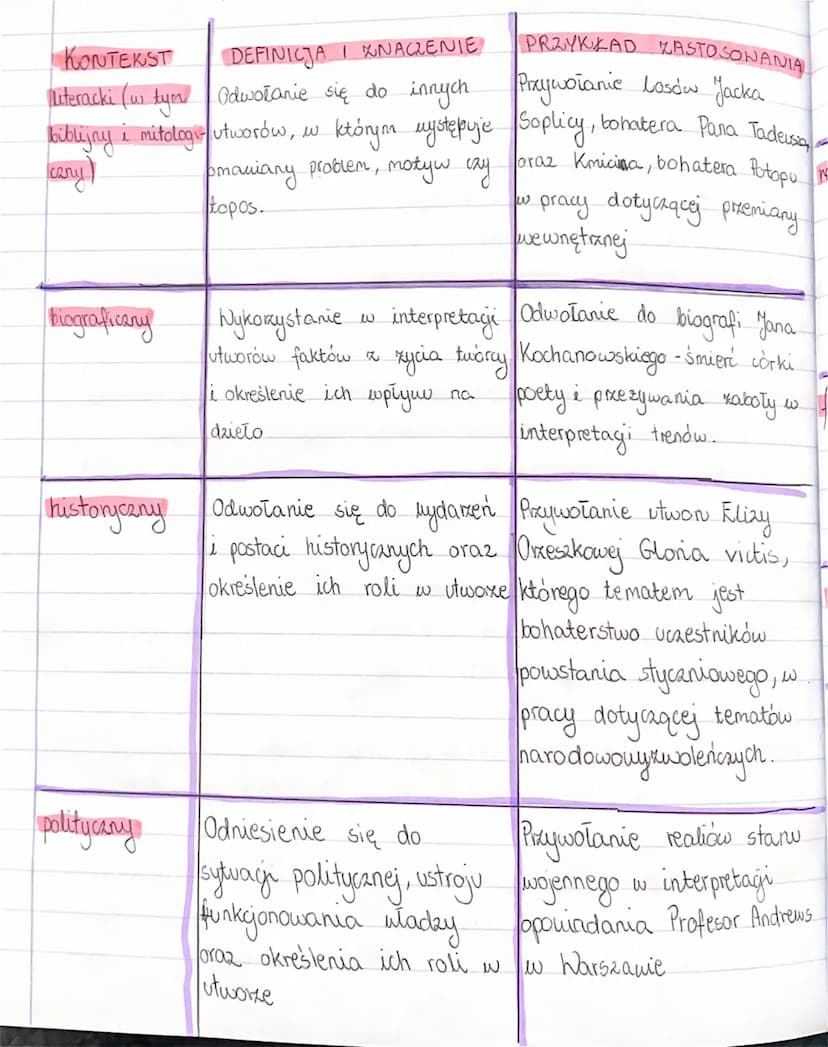 KONTEKST
literacki (w tym
biblijny i mitologi-
czny)
DEFINICJA I ZNACZENIE
Odwołanie się do innych
utworów, w którym występuje
omawiany problem, motyw czy
topos.
PRZYKŁAD ZASTOSOWANIA
Przywołanie losów Jacka
Soplicy, bohatera Pana Tadeusza,
oraz Kmicica, bohatera Potopu
w pracy dotyczącej przemiany
wewnętrznej
biograficzny
Wykorzystanie w interpretacji
utworów faktów z życia twórcy
i określenie ich wpływu na
dzieło
Odwołanie do biografi Jana
Kochanowskiego - śmierć córki
poety i przeżywania żałoby w
interpretacji trenów.
historyczny
Odwołanie się do wydarzeń
i postaci historycznych oraz
określenie ich roli w utworze
Przywołanie utworu Elizy
Orzeszkowej Gloria victis,
którego tematem jest
bohaterstwo uczestników
powstania styczniowego, w
pracy dotyczącej tematów
narodowowyzwoleńczych.
polityczny
Odniesienie się do
sytuacji politycznej, ustroju
funkcjonowania władzy
oraz określenia ich roli w
utworze
Przywołanie realiów stanu
wojennego w interpretacji
opowiadania Profesor Andrews
w Warszawie